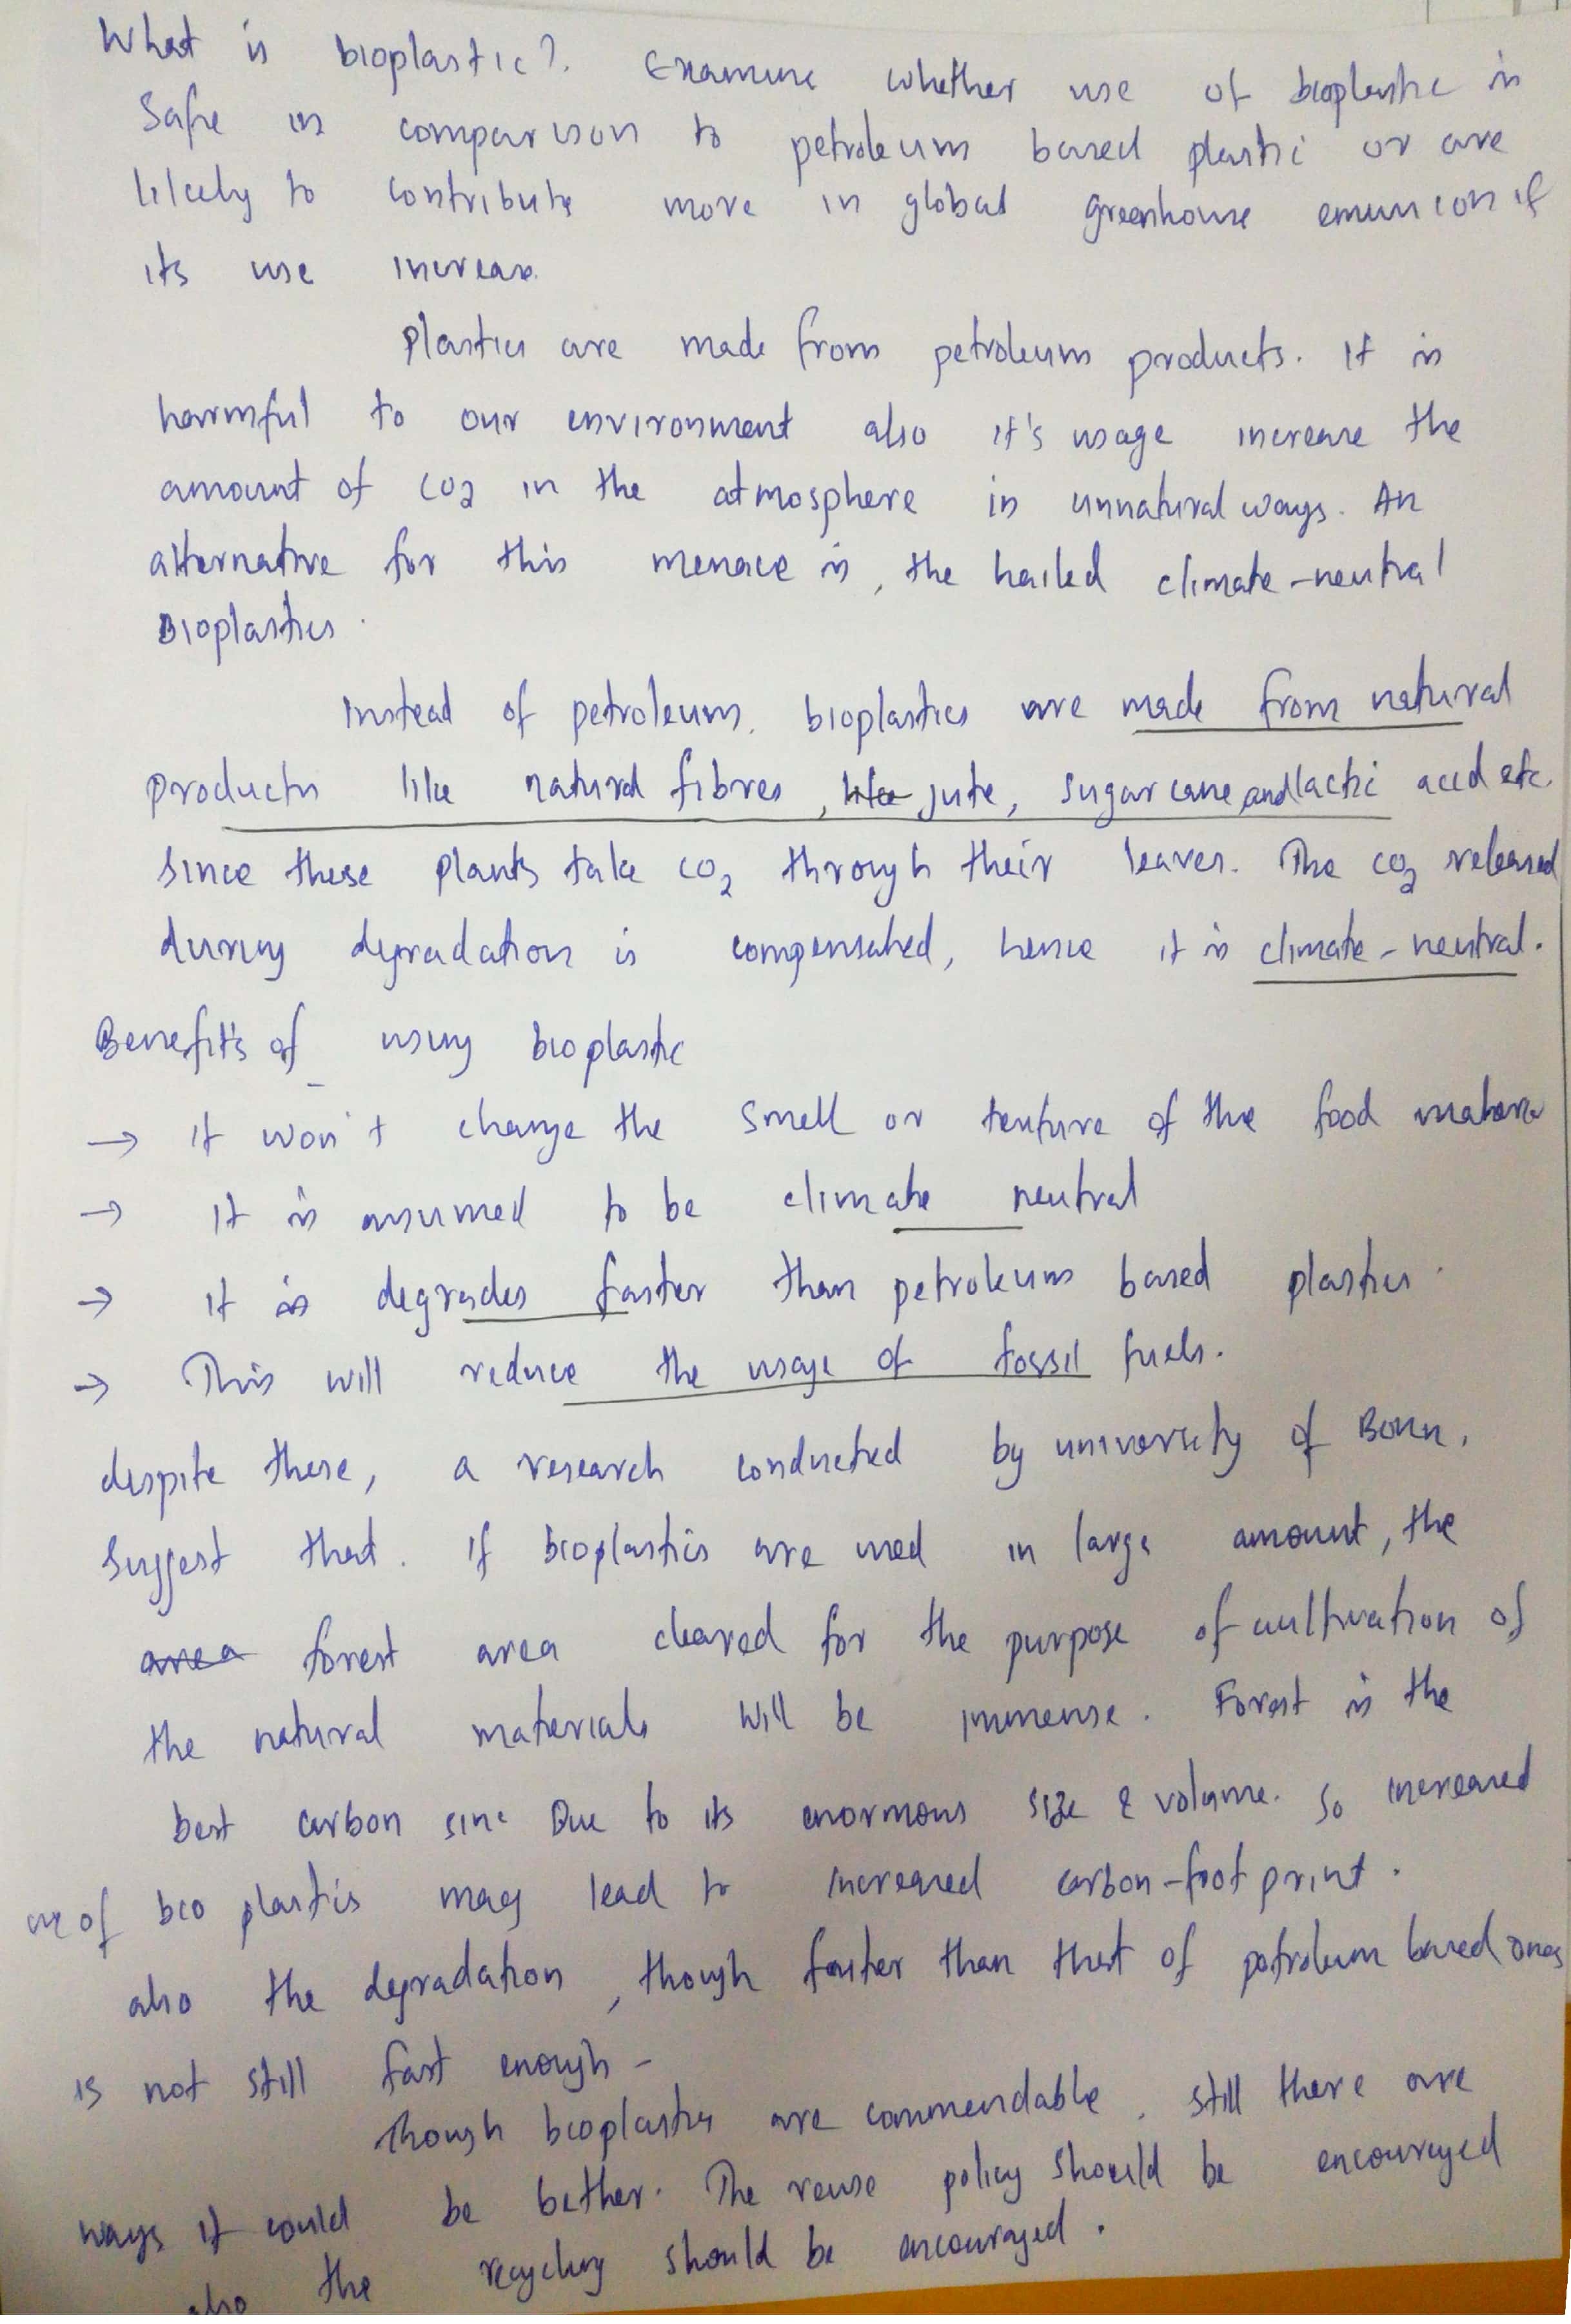 What is bioplastic?. Examine whether use of bioplastic is
Safe in comparison to petroleum based plastic or are
likely to contribute more in global greenhouse emission if
its use increase.
Plastics are made from petroleum products. It is
harmful to our environment also it's usage increase the
amount of CO2 in the atmosphere in unnatural ways. An
alternative for this menace is, the hailed climate-neutral
Bioplastics.
Instead of petroleum, bioplastics are made from natural
products like natural fibres, like jute, sugarcane and lactic acid etc.
Since these plants take CO2 through their leaves. The CO2 released
during degradation is compensated, hence it is climate-neutral.
Benefits of using bioplastic
→ it won't change the smell or texture of the food
→ It is assumed to be climate neutral
→ it is degrades faster than petroleum based plastics.
→ This will reduce the usage of fossil fuels.
despite these, a research conducted by university of Bonn,
Suggest that. if bioplastics are used in large amount, the
area forest area cleared for the purpose of cultivation of
the natural materials will be immense. Forest is the
best carbon sinc Due to its enormous size & volume. So increased
use of bio plastics may lead to increased carbon-foot print.
also the degradation, though faster than that of petroleum based ones
is not still fast enough-
Though bioplastics are commendable, still there are
ways it could be better. The reuse policy should be encouraged
also the recycling should be encouraged.